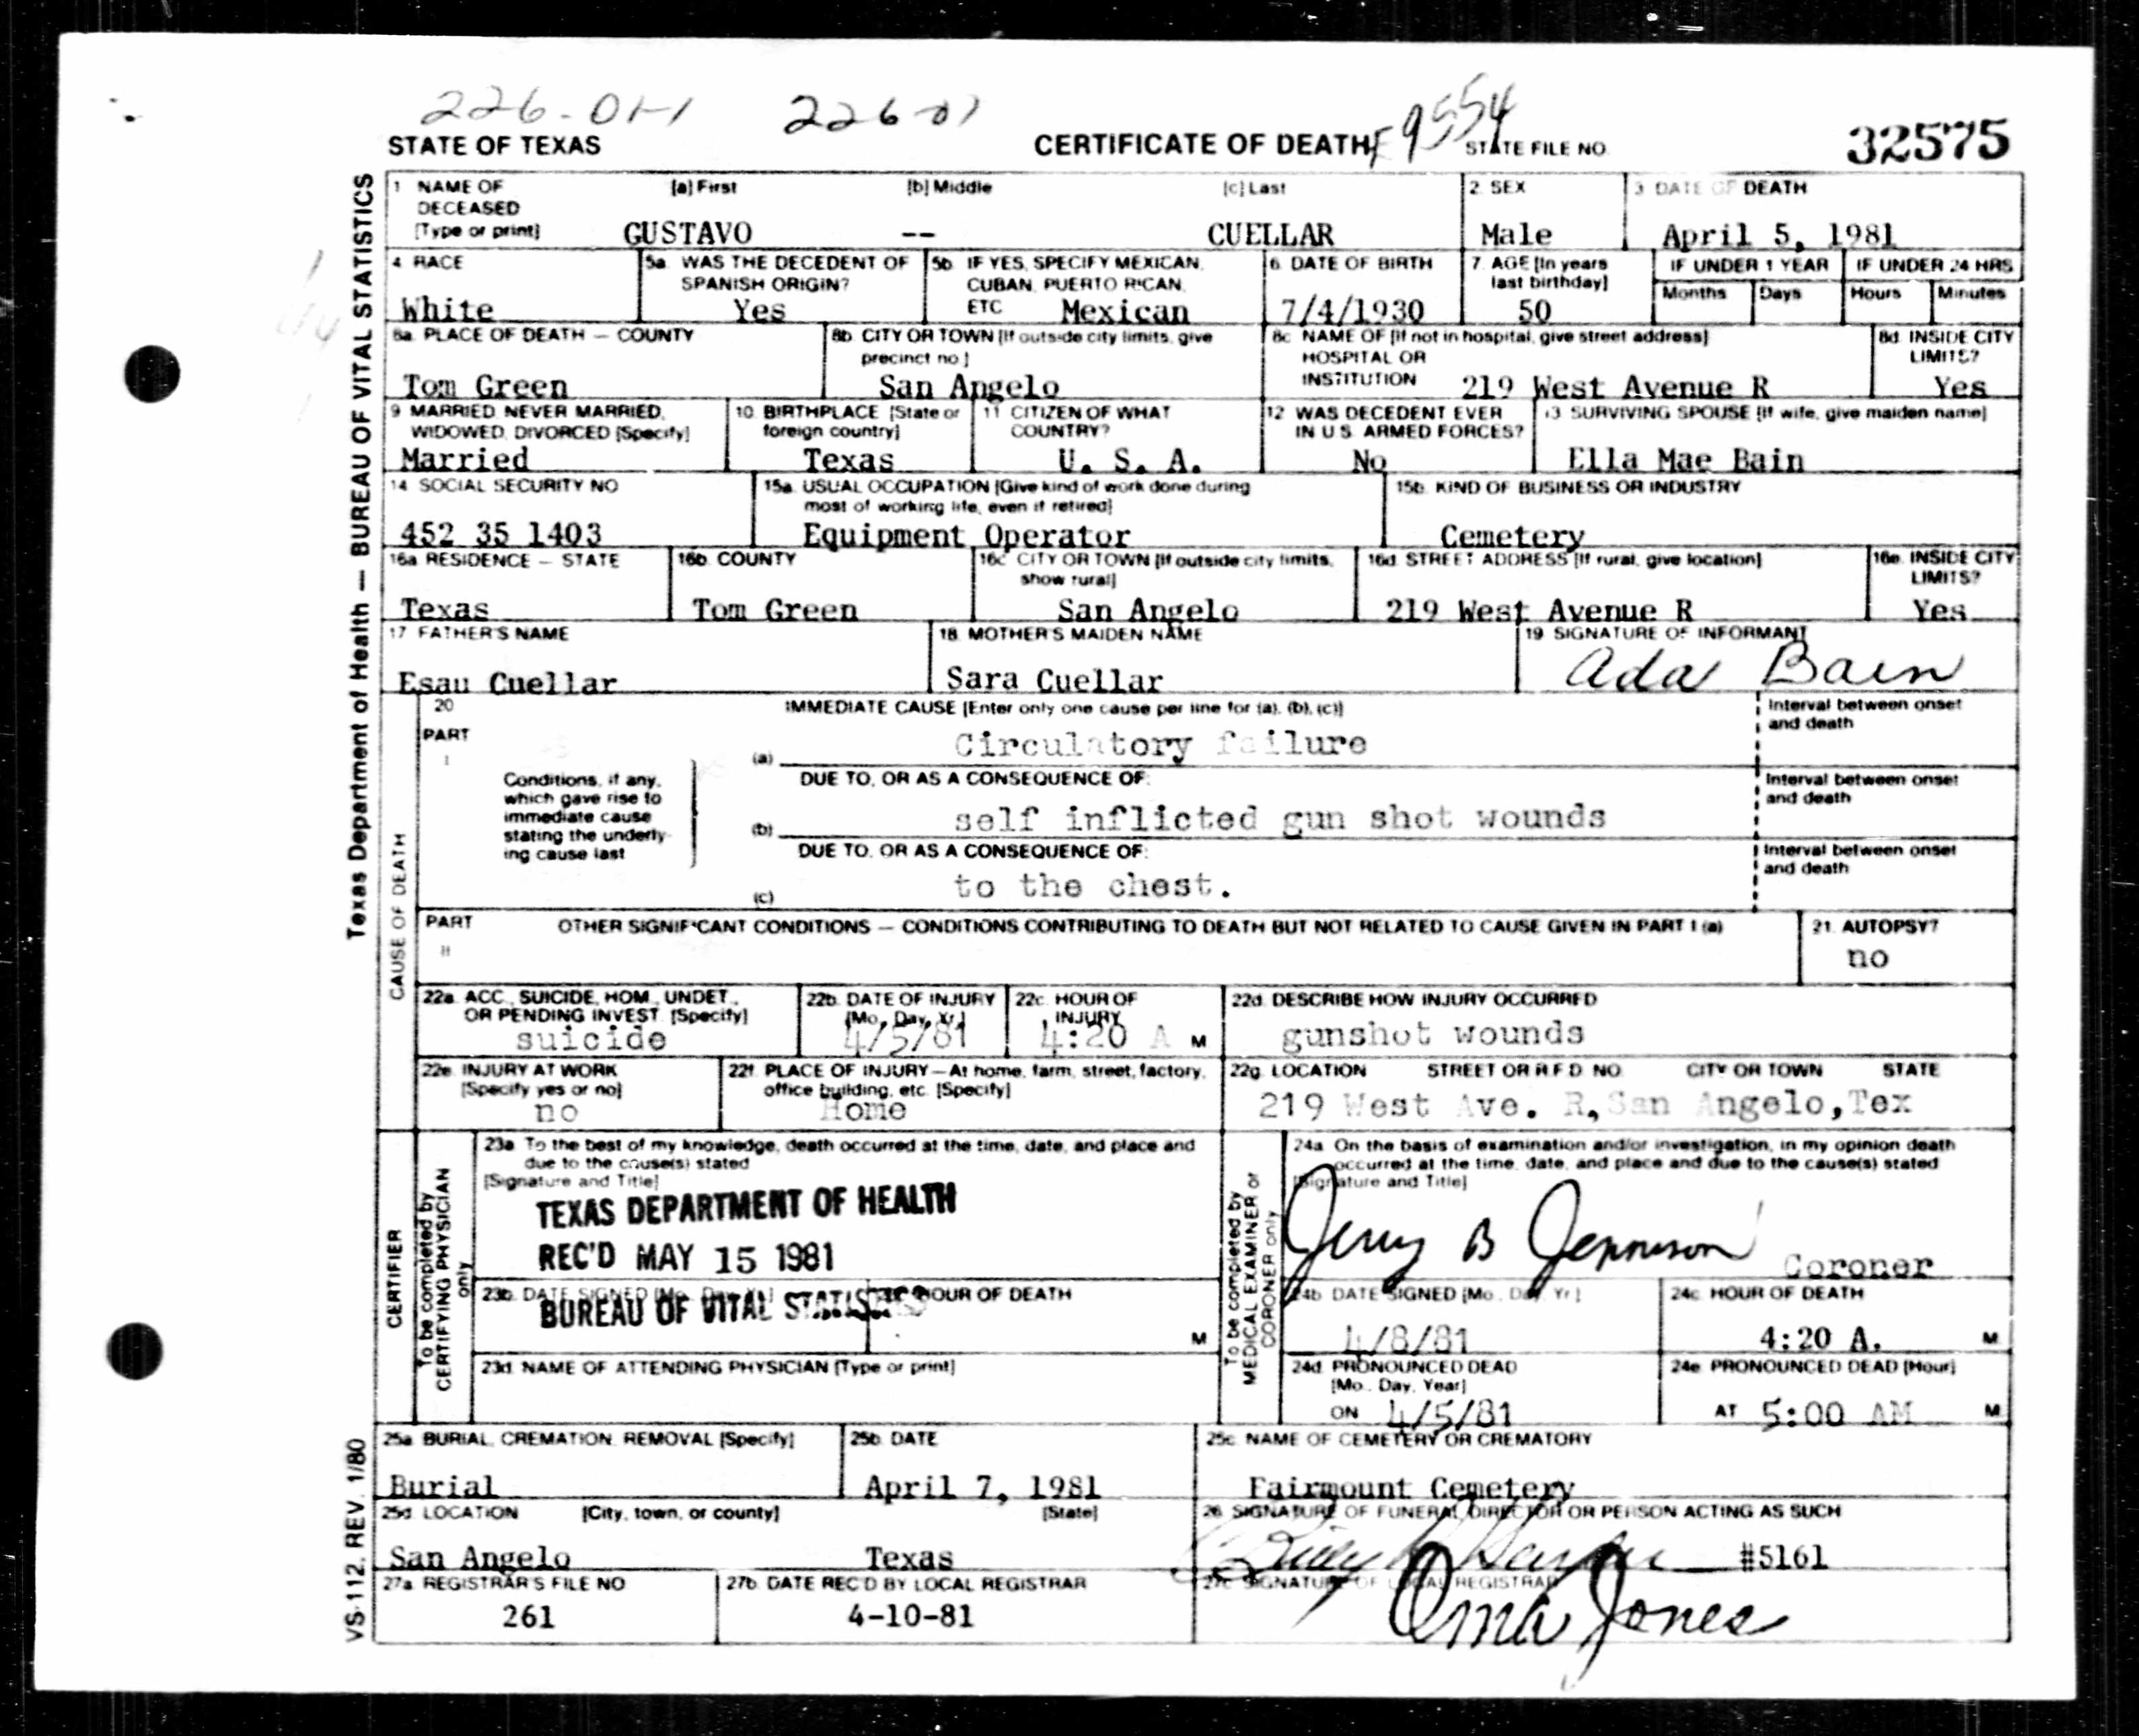 226-01-1 226-01
STATE OF TEXAS CERTIFICATE OF DEATH E9554 STATE FILE NO. 32575
Texas Department of Health — BUREAU OF VITAL STATISTICS
1 NAME OF DECEASED [Type or print] [a] First [b] Middle [c] Last 2 SEX 3 DATE OF DEATH
GUSTAVO -- CUELLAR Male April 5, 1981
4 RACE 5a WAS THE DECEDENT OF SPANISH ORIGIN? 5b IF YES, SPECIFY MEXICAN, CUBAN, PUERTO RICAN, ETC 6 DATE OF BIRTH 7 AGE [In years last birthday] IF UNDER 1 YEAR IF UNDER 24 HRS
Months Days Hours Minutes
White Yes Mexican 7/4/1930 50
8a PLACE OF DEATH — COUNTY 8b CITY OR TOWN [If outside city limits, give precinct no.] 8c NAME OF [If not in hospital, give street address] HOSPITAL OR INSTITUTION 8d INSIDE CITY LIMITS?
Tom Green San Angelo 219 West Avenue R Yes
9 MARRIED, NEVER MARRIED, WIDOWED, DIVORCED [Specify] 10 BIRTHPLACE [State or foreign country] 11 CITIZEN OF WHAT COUNTRY? 12 WAS DECEDENT EVER IN U.S. ARMED FORCES? 13 SURVIVING SPOUSE [If wife, give maiden name]
Married Texas U. S. A. No Ella Mae Bain
14 SOCIAL SECURITY NO 15a USUAL OCCUPATION [Give kind of work done during most of working life, even if retired] 15b KIND OF BUSINESS OR INDUSTRY
452 35 1403 Equipment Operator Cemetery
16a RESIDENCE — STATE 16b COUNTY 16c CITY OR TOWN [If outside city limits, show rural] 16d STREET ADDRESS [If rural, give location] 16e INSIDE CITY LIMITS?
Texas Tom Green San Angelo 219 West Avenue R Yes
17 FATHER'S NAME 18 MOTHER'S MAIDEN NAME 19 SIGNATURE OF INFORMANT
Esau Cuellar Sara Cuellar Ada Bain
CAUSE OF DEATH
20 IMMEDIATE CAUSE [Enter only one cause per line for (a), (b), (c)] Interval between onset and death
PART I
(a) Circulatory failure
Conditions, if any, which gave rise to immediate cause stating the underlying cause last
DUE TO, OR AS A CONSEQUENCE OF: Interval between onset and death
(b) self inflicted gun shot wounds
DUE TO, OR AS A CONSEQUENCE OF: Interval between onset and death
(c) to the chest.
PART II OTHER SIGNIFICANT CONDITIONS — CONDITIONS CONTRIBUTING TO DEATH BUT NOT RELATED TO CAUSE GIVEN IN PART I (a) 21 AUTOPSY?
no
22a ACC., SUICIDE, HOM., UNDET., OR PENDING INVEST. [Specify] 22b DATE OF INJURY [Mo., Day, Yr.] 22c HOUR OF INJURY 22d DESCRIBE HOW INJURY OCCURRED
suicide 4/5/81 4:20 A M gunshot wounds
22e INJURY AT WORK [Specify yes or no] 22f PLACE OF INJURY—At home, farm, street, factory, office building, etc. [Specify] 22g LOCATION STREET OR R.F.D. NO CITY OR TOWN STATE
no Home 219 West Ave. R, San Angelo, Tex
CERTIFIER
To be completed by CERTIFYING PHYSICIAN only
23a To the best of my knowledge, death occurred at the time, date, and place and due to the cause(s) stated
[Signature and Title]
TEXAS DEPARTMENT OF HEALTH
REC'D MAY 15 1981
BUREAU OF VITAL STATISTICS
23b DATE SIGNED [Mo., Day, Yr.] HOUR OF DEATH
M
23d NAME OF ATTENDING PHYSICIAN [Type or print]
To be completed by MEDICAL EXAMINER or CORONER only
24a On the basis of examination and/or investigation, in my opinion death occurred at the time, date, and place and due to the cause(s) stated
[Signature and Title]
Jerry B Jennison Coroner
24b DATE SIGNED [Mo., Day, Yr.] 24c HOUR OF DEATH
4/8/81 4:20 A. M
24d PRONOUNCED DEAD [Mo., Day, Year] 24e PRONOUNCED DEAD [Hour]
ON 4/5/81 AT 5:00 AM M
25a BURIAL, CREMATION, REMOVAL [Specify] 25b DATE 25c NAME OF CEMETERY OR CREMATORY
Burial April 7, 1981 Fairmount Cemetery
25d LOCATION [City, town, or county] [State] 26 SIGNATURE OF FUNERAL DIRECTOR OR PERSON ACTING AS SUCH
San Angelo Texas #5161
27a REGISTRAR'S FILE NO 27b DATE REC'D BY LOCAL REGISTRAR 27c SIGNATURE OF LOCAL REGISTRAR
261 4-10-81 Oma Jones
VS-112, REV. 1/80